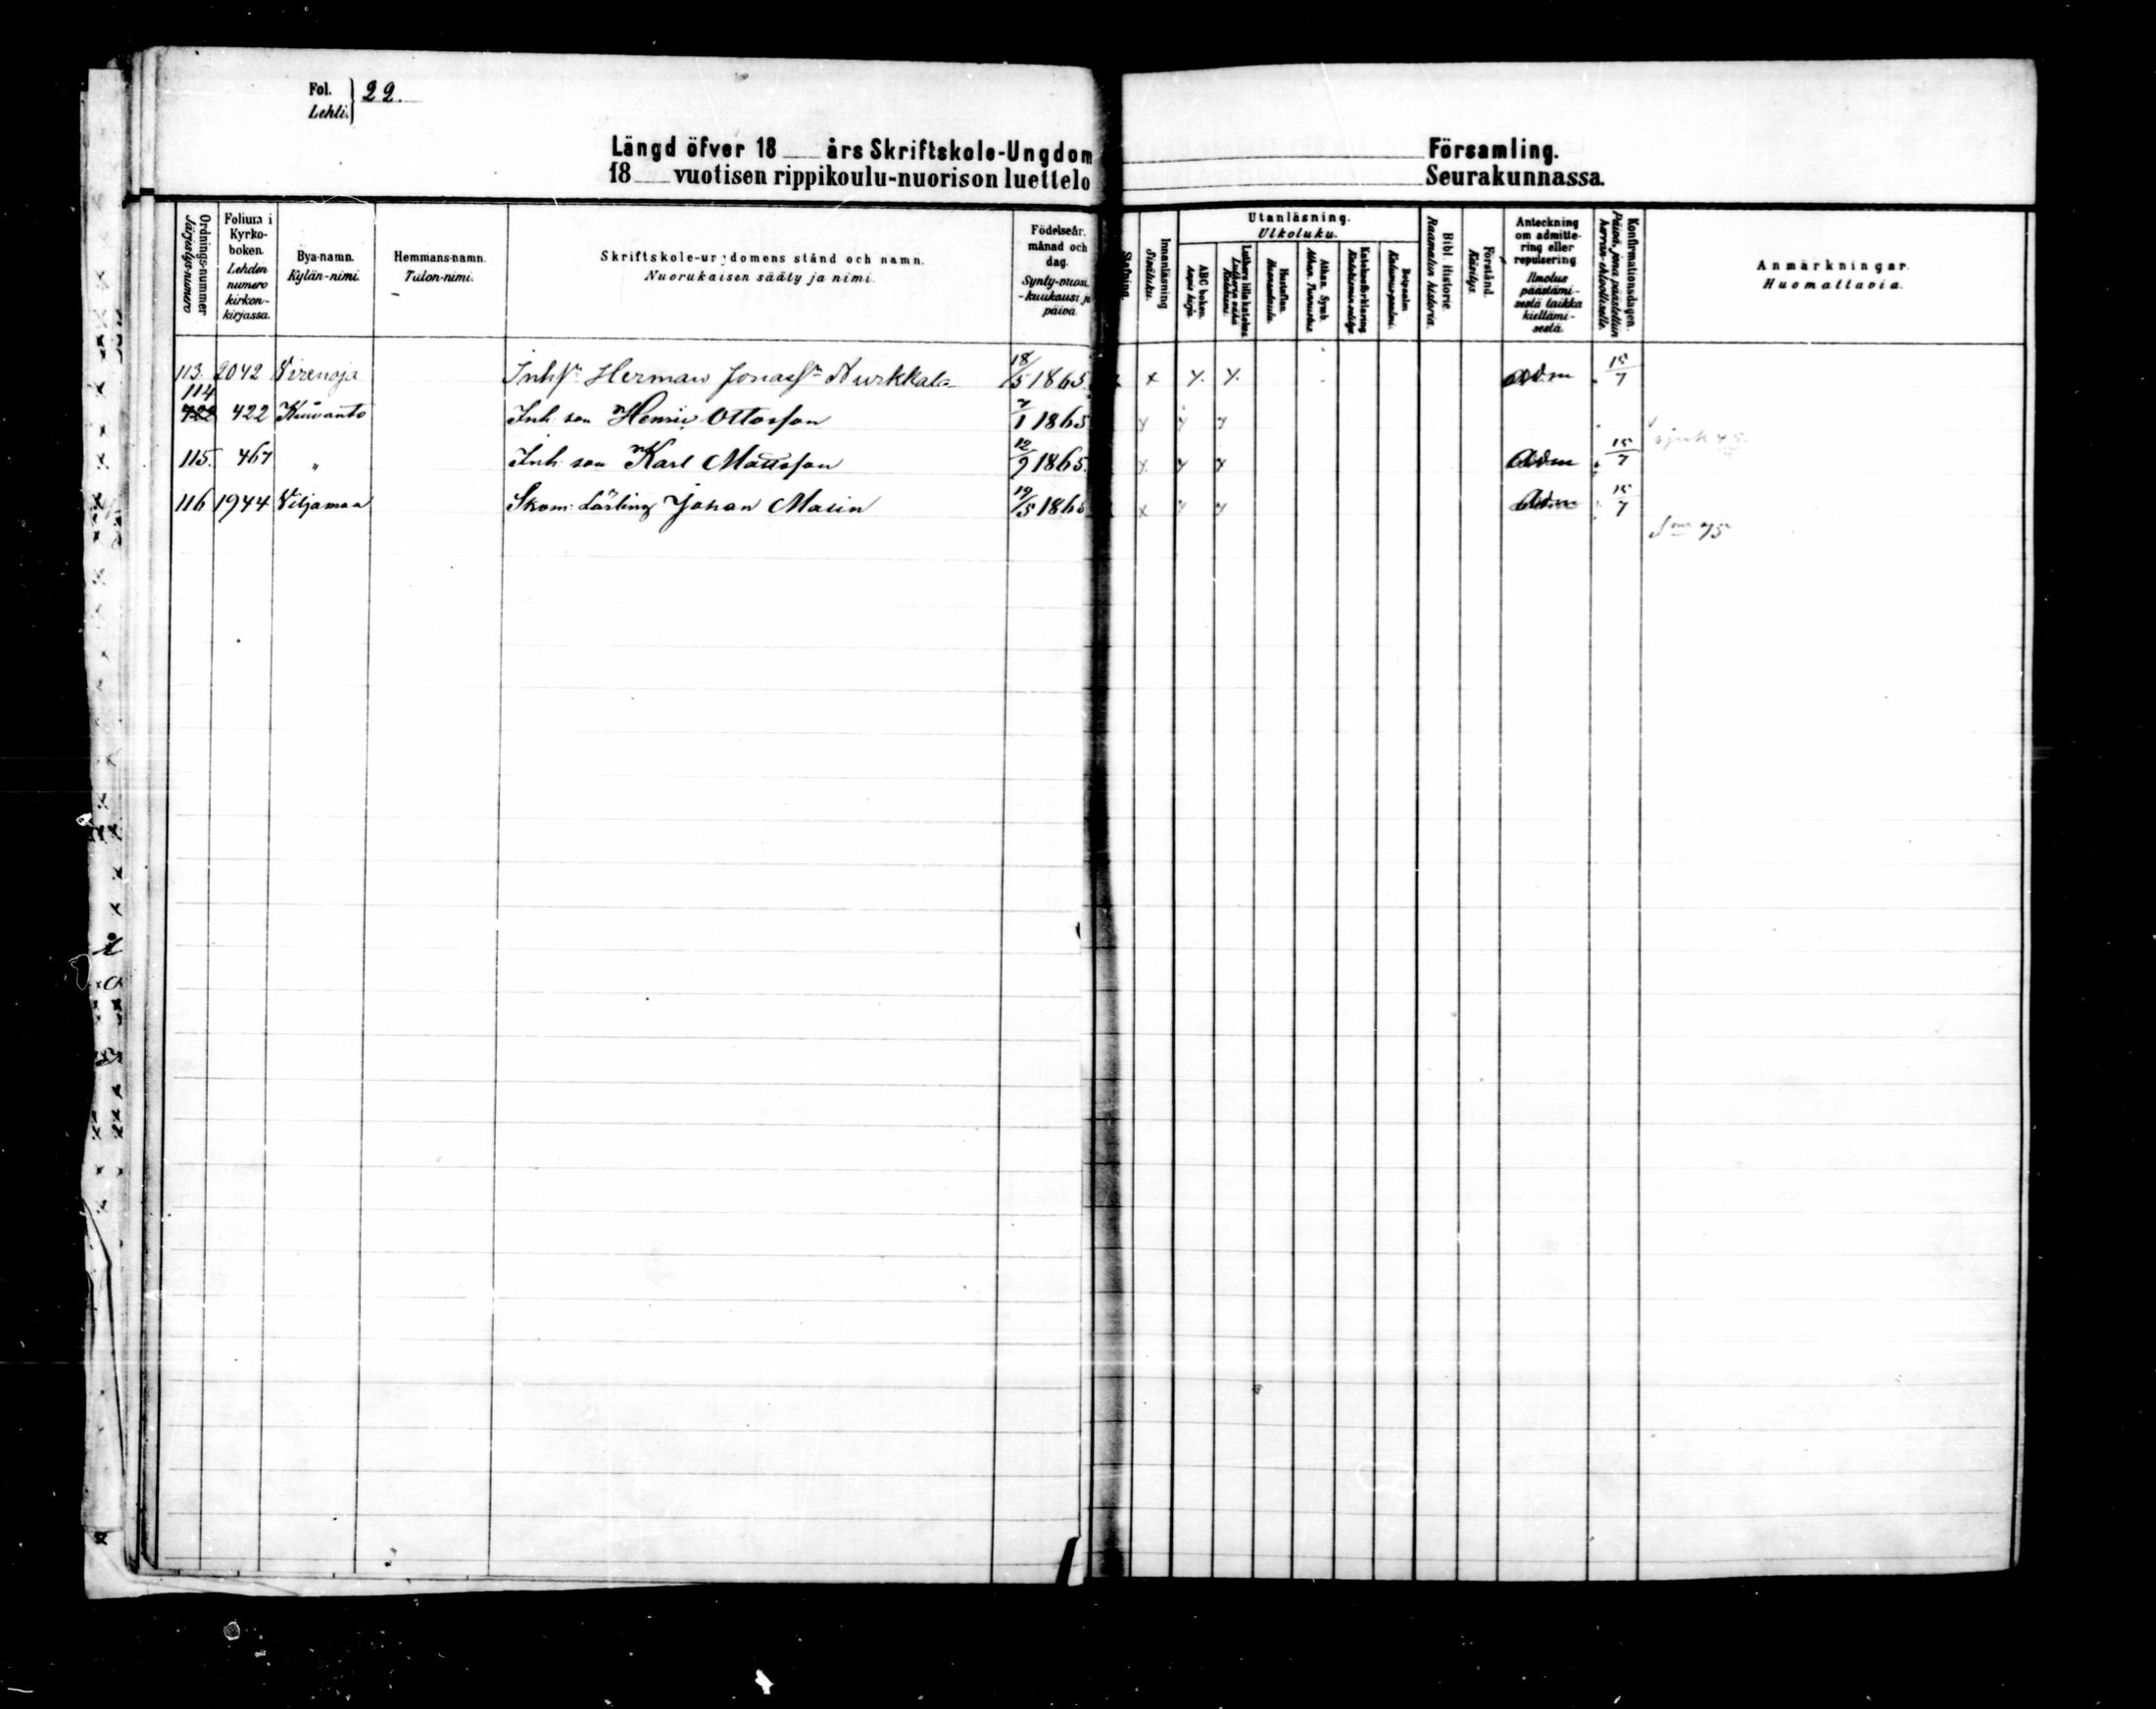 Fol. 22.
Lehti.
Längd öfver 18 års Skriftskole-Ungdom Församling.
18 vuotisen rippikoulu-nuorison luettelo Seurakunnassa.
Ordnings-nummer
Järjestys-numero
Folium i Kyrko-boken.
Lehden numero kirkon-kirjassa.
Bya-namn.
Kylän-nimi.
Hemmans-namn.
Talon-nimi.
Skriftskole-ungdomens stånd och namn.
Nuorukaisen sääty ja nimi.
Födelseår, månad och dag.
Synty-vuosi, -kuukausi ja päivä.
Stafning.
Innanläsning
Sisäluku.
Utanläsning.
Ulkoluku.
ABC boken.
Aapis kirja.
Luthers lilla katekes.
Hustaflan.
Huoneentaulu.
Athan. Symb.
Athan. Tunnustus.
Katekesförklaring
Botpsalm.
Katumus-psalmi.
Bibl. Historie.
Raamatun historia.
Förstånd.
Käsitys.
Anteckning om admitte-ring eller repulsering
Ilmotus päästämi-sestä taikka kieltämi-sestä.
Konfirmationsdagen.
Päivä, jona päästettiin herran-ehtoolliselle.
Anmärkningar.
Huomattavia.
113. 2042 Virenoja Inhsn Herman Jonassn Nurkkala 18/5 1865. x x x. x. adm 15/7
114 422 Kuivanto Inh. son Henric Ottosson 7/1 1865 x x x
115. 467 " Inh. son Karl Mattsson 12/9 1865. x x x adm 15/7
116 1944 Viljamaa Skom: Lärling Johan Malin 19/5 1865 x x x Adm 15/7